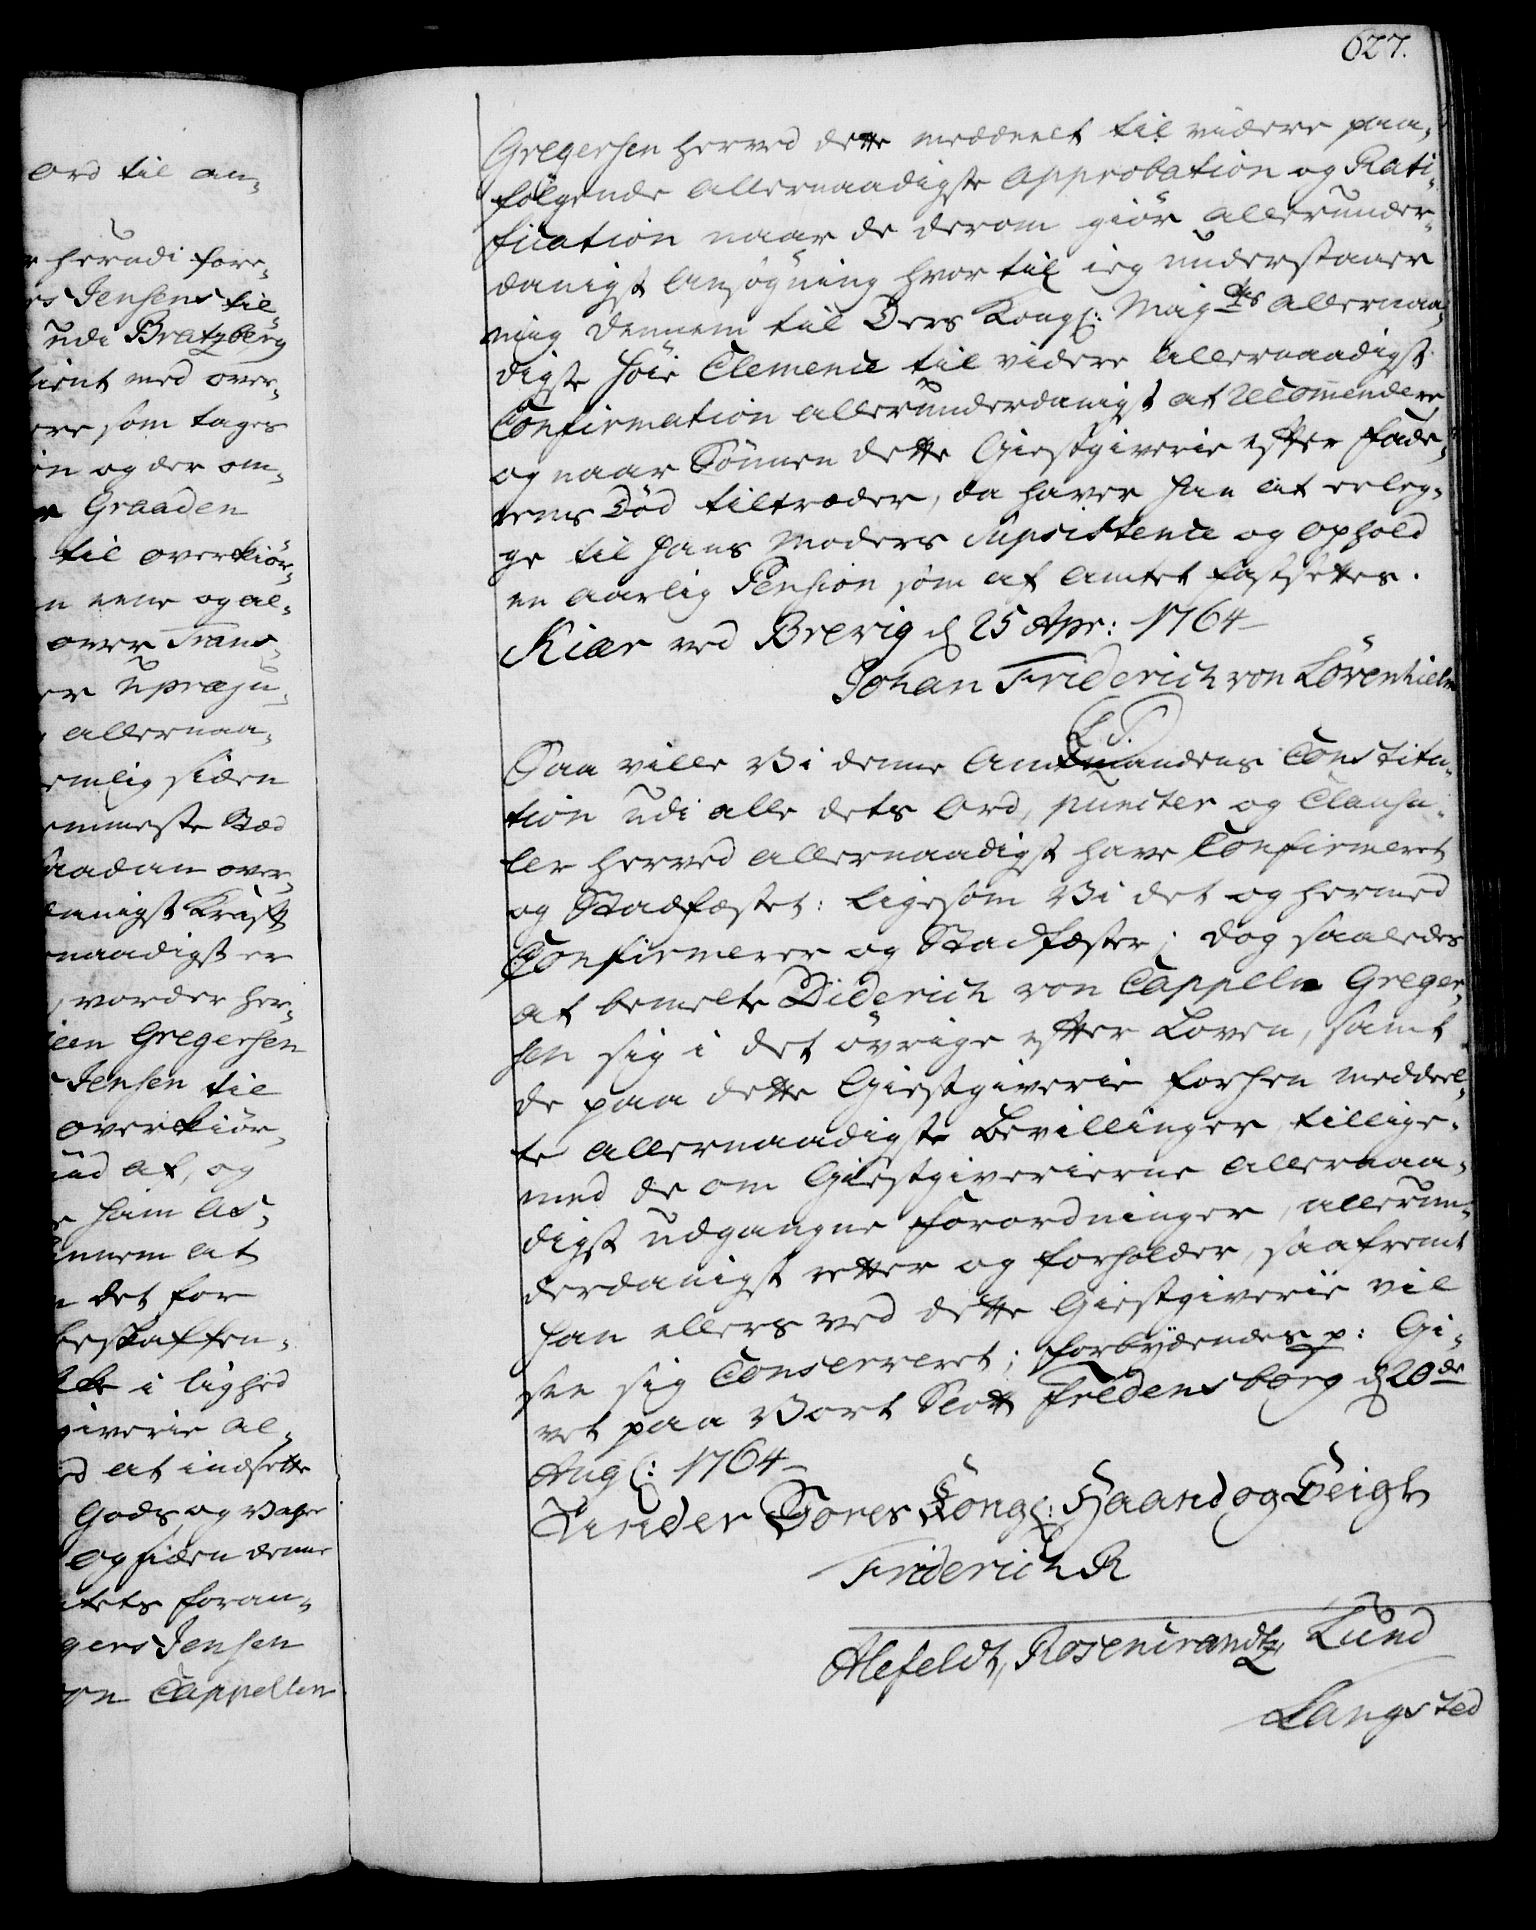 ord til an-
herudi fore-
rs Jensens til
udi Bratzberg
tient med over-
ere som tages
en og der om-
Graaden
til overkiör-
n eene og al-
over Trans-
er upræju-
allernaa-
emlig siden
emmeste Sted
saadan over-
naadigst er
, vorder her-
Gregersen
Jensen til
overkiör-
ud af, og
ham As-
ennem at
det for
beskaffen-
i lighed
giverie al-
ed at indsette
Gods, og
og siden denne
tets foran-
gers Jensen
on Cappellen
627.
Gregersen herved dette meddeelt til videre paa-
følgende allernaadigste Approbation og Rati-
fication naar de derom giör allerunder-
danigst Ansögning hvor til ieg understaaer
mig dennem til Ders Kongl: Mayts allernaa-
digste höie Clemence til videre allernaadigst
Confirmation allerunderdanigst at recommendere
og naar Sönnen dette Giestgiverie efter Fade-
rens Död tiltræder, da haver han at erleg-
ge til hans Moders Supsistence og ophold
en aarlig Pension som af Amtet fastsettes.
Kiær ved Brevig d 25 Apr: 1764
Johan Friderich von Lövenhielm
L.S.
Saa ville Vi denne Amtmandens Constitu-
tion udi alle dets Ord, puncter og Clausu-
ler herved allernaadigst have Confirmeret
og Stadfæstet: ligesom Vi det og hermed
Confirmerer og Stadfæster; dog saaledes
at bemelte Diderich von Cappeln Greger-
sen sig i det övrige efter Loven, samt
de paa dette Giestgiverie forhen meddeel-
te allernaadigste Bevillinger, tillige-
med de om Giestgiverierne allernaa-
digst udgangne Forordninger, allerun-
derdanigst retter og forholder, saafremt
han ellers ved dette Giestgiverie vil
see sig Conserveret; forbydendes p: Gi-
vet paa Vort Slott Fredensborg d 20de
Aug: 1764
Under Vores Kongl: Haand og Seigl
Friderich R
Alefeldt, Rosencrandtz, Lund
Langsted